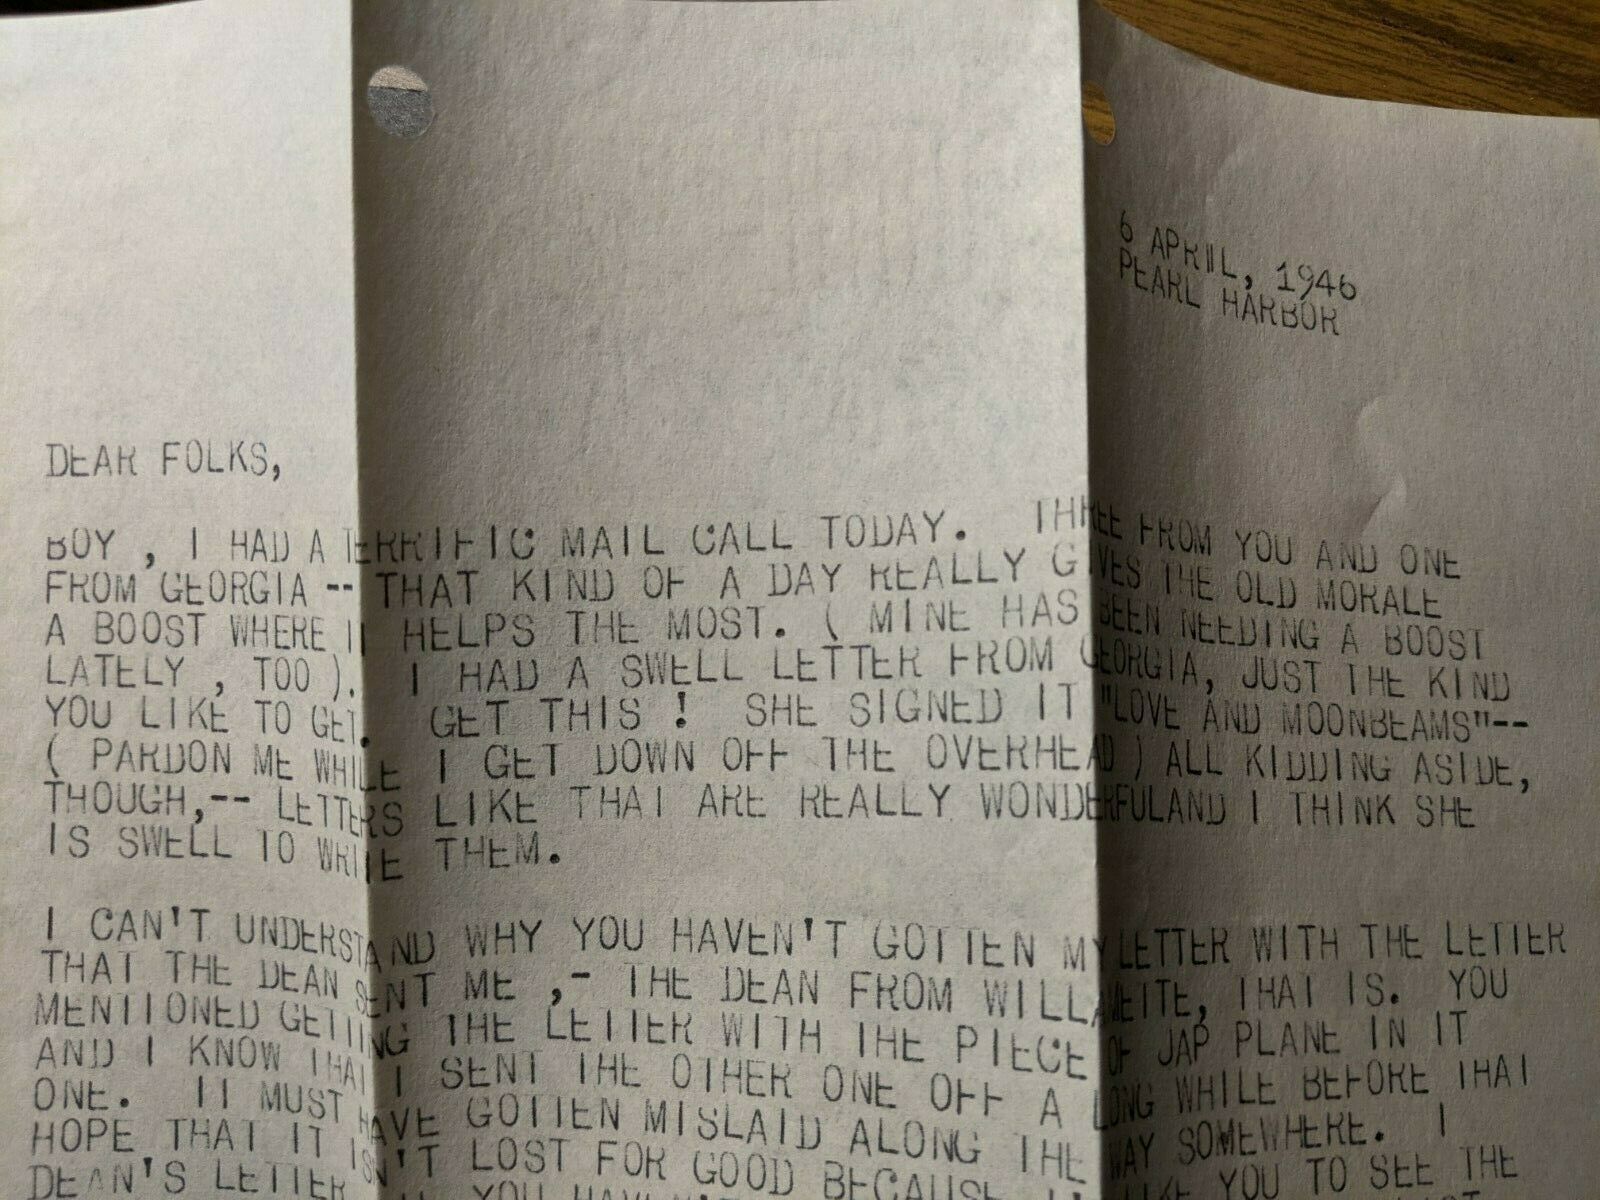 6 APRIL, 1946
PEARL HARBOR
DEAR FOLKS,
BOY , I HAD A TERRIFIC MAIL CALL TODAY. THREE FROM YOU AND ONE
FROM GEORGIA -- THAT KIND OF A DAY REALLY GIVES THE OLD MORALE
A BOOST WHERE IT HELPS THE MOST. ( MINE HAS BEEN NEEDING A BOOST
LATELY , TOO ). I HAD A SWELL LETTER FROM GEORGIA, JUST THE KIND
YOU LIKE TO GET. GET THIS ! SHE SIGNED IT "LOVE AND MOONBEAMS"--
( PARDON ME WHILE I GET DOWN OFF THE OVERHEAD ) ALL KIDDING ASIDE,
THOUGH,-- LETTERS LIKE THAT ARE REALLY WONDERFULAND I THINK SHE
IS SWELL TO WRITE THEM.
I CAN'T UNDERSTAND WHY YOU HAVEN'T GOTTEN MY LETTER WITH THE LETTER
THAT THE DEAN SENT ME ,- THE DEAN FROM WILLAMETTE, THAT IS. YOU
MENTIONED GETTING THE LETTER WITH THE PIECE OF JAP PLANE IN IT
AND I KNOW THAT I SENT THE OTHER ONE OFF A LONG WHILE BEFORE THAT
ONE. IT MUST HAVE GOTTEN MISLAID ALONG THE WAY SOMEWHERE. I
HOPE THAT IT ISN'T LOST FOR GOOD BECAUSE LIKE YOU TO SEE THE
DEAN'S LETTER YOU HAVEN'T